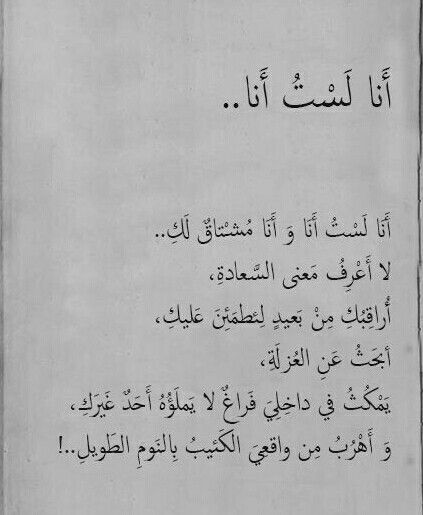 أَنا لَسْتُ أَنا..
أَنَا لَسْتُ أَنَا وَ أَنَا مُشْتاقٌ لَكِ..
لا أَعْرِفُ مَعنى السَّعادةِ،
أُراقِبُكِ مِنْ بَعيدٍ لِئطمَئِنَ عَليكِ،
أبحَثُ عَنِ العُزلَةِ،
يَمْكُثُ في داخِلِيَ فَراغٌ لا يَملَؤُهُ أَحَدٌ غَيرَكِ،
وَ أَهْرُبُ مِن واقعِيَ الكَئيبُ بِالنَومِ الطَويلِ..!